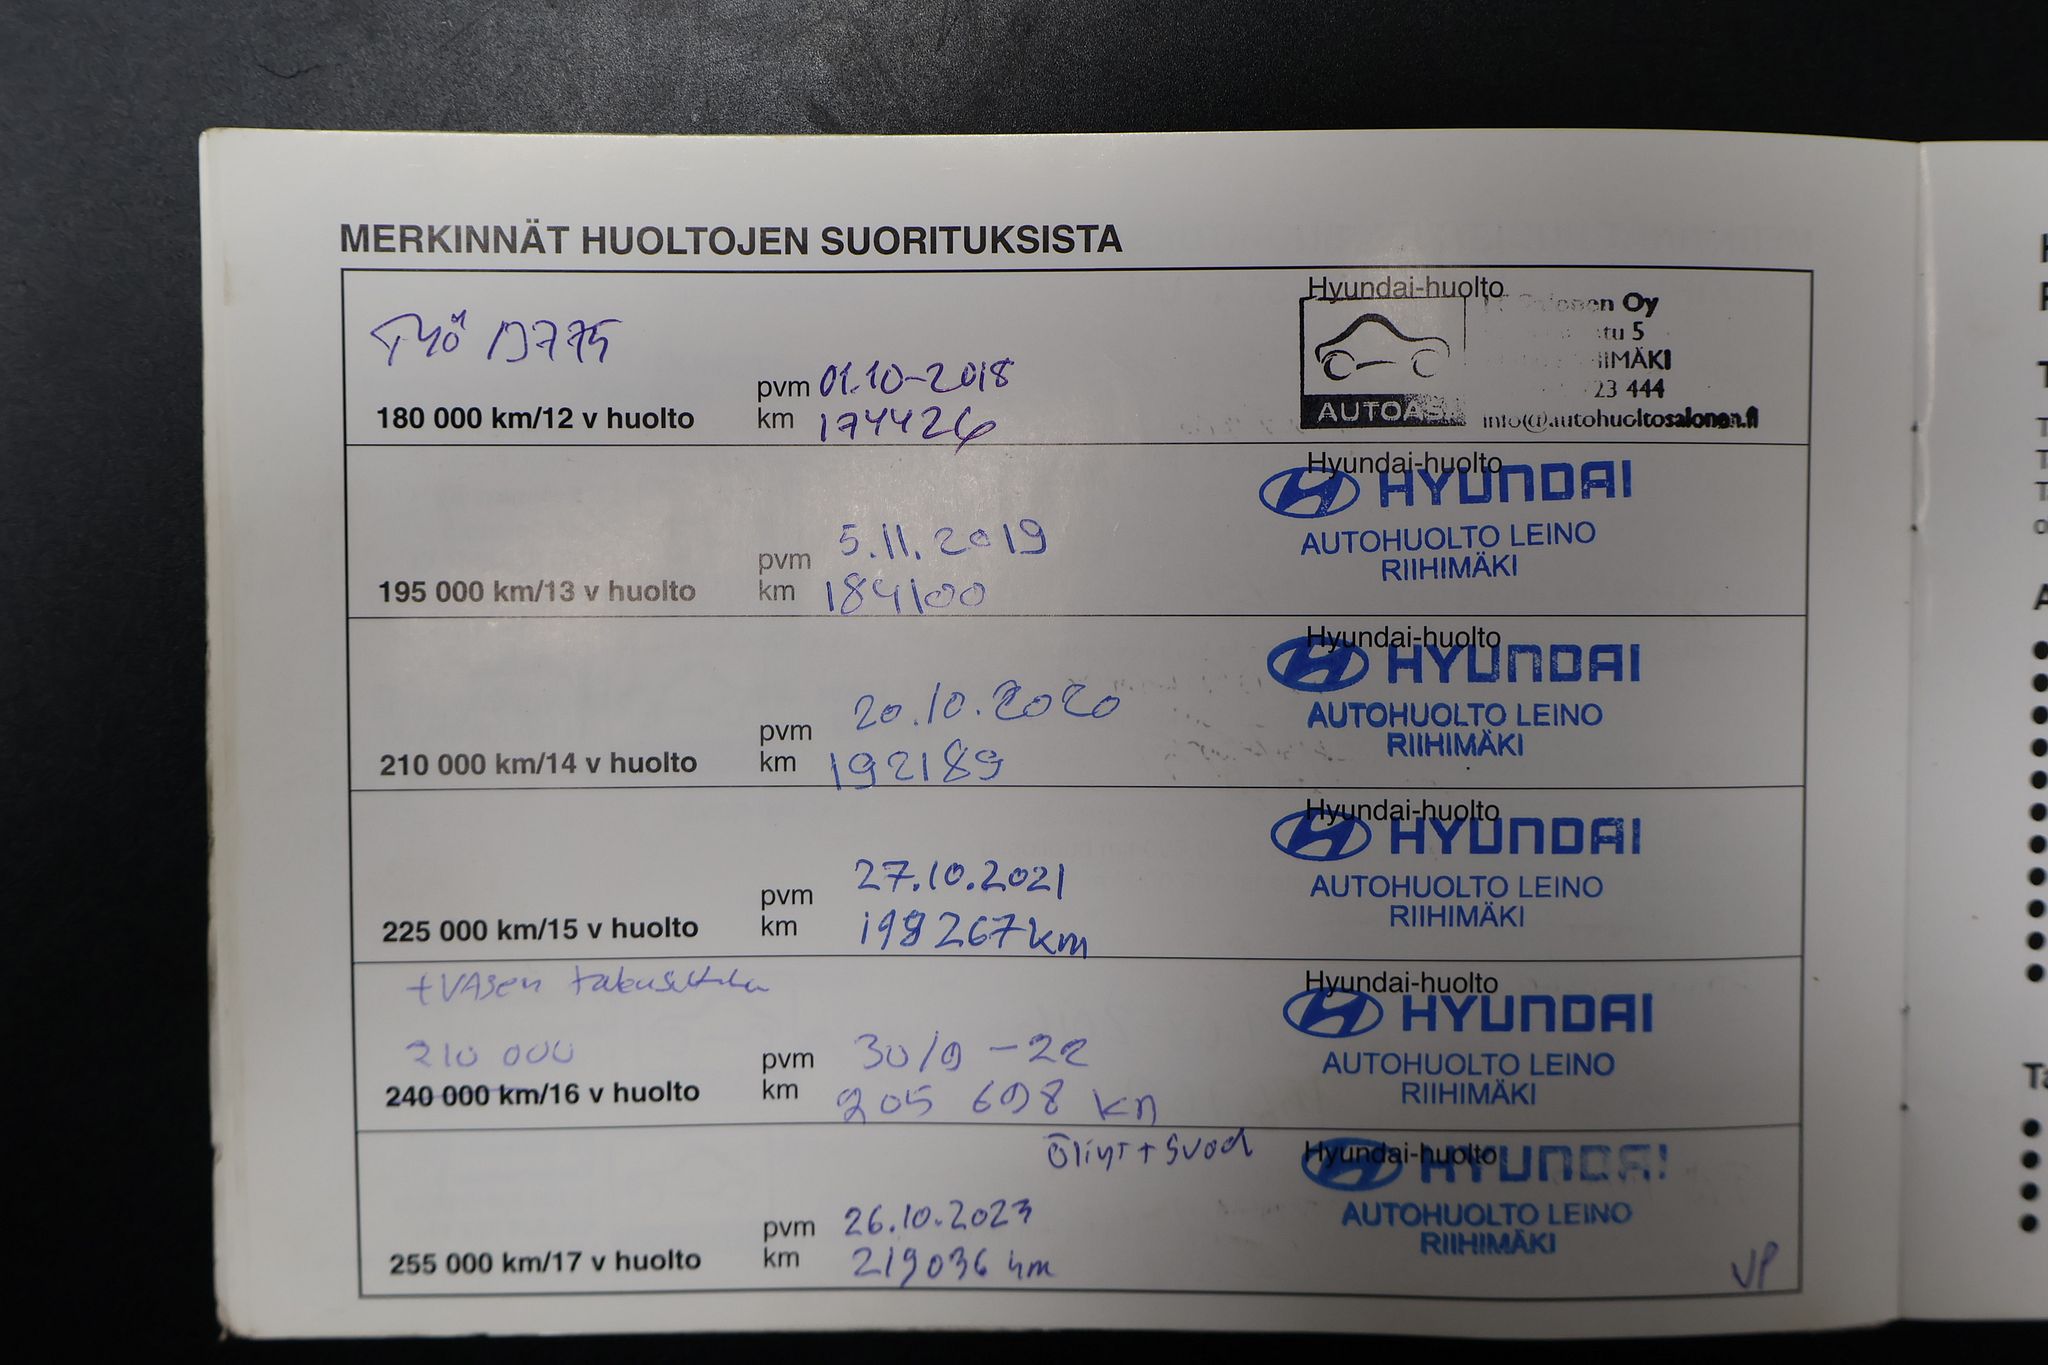 MERKINNÄT HUOLTOJEN SUORITUKSISTA
Hyundai-huolto
Salonen Oy
tu 5
IIMÄKI
23 444
AUTOAS
info@autohuoltosalonen.fi
TYÖ 19775
pvm 01.10-2018
180 000 km/12 v huolto
km 174426
Hyundai-huolto
HYUNDAI
AUTOHUOLTO LEINO
RIIHIMÄKI
pvm 5.11.2019
195 000 km/13 v huolto
km 184100
Hyundai-huolto
HYUNDAI
AUTOHUOLTO LEINO
RIIHIMÄKI
pvm 20.10.2020
210 000 km/14 v huolto
km 192189
Hyundai-huolto
HYUNDAI
AUTOHUOLTO LEINO
RIIHIMÄKI
pvm 27.10.2021
225 000 km/15 v huolto
km 198267 km
+ VASEN
Hyundai-huolto
HYUNDAI
AUTOHUOLTO LEINO
RIIHIMÄKI
210 000
pvm 30/9 -22
240 000 km/16 v huolto
km 205 698 km
Öljyt + Suod
Hyundai-huolto
HYUNDAI
AUTOHUOLTO LEINO
RIIHIMÄKI
pvm 26.10.2023
255 000 km/17 v huolto
km 219036 km
VP